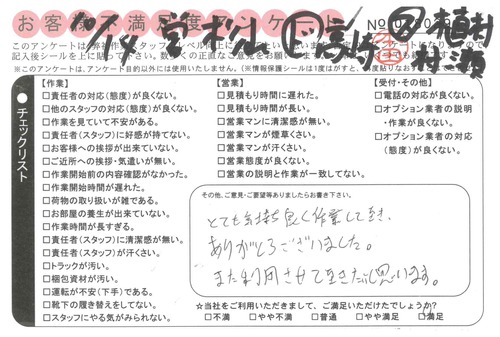 お客様不満足度アンケート
No
※このアンケートは、アンケート目的以外には使用いたしません。
チェックリスト
【作業】
□責任者の対応(態度)が良くない。
□他のスタッフの対応(態度)が良くない。
□作業を見ていて不安がある。
□責任者(スタッフ)に好感が持てない。
□お客様への挨拶が出来ていない。
□ご近所への挨拶・気遣いが無い。
□作業開始前の内容確認がなかった。
□作業開始時間が遅れた。
□荷物の取り扱いが雑である。
□お部屋の養生が出来ていない。
□作業時間が長すぎる。
□責任者(スタッフ)に清潔感が無い。
□責任者(スタッフ)が汗くさい。
□トラックが汚い。
□梱包資材が汚い。
□運転が不安(下手)である。
□靴下の履き替えをしてない。
□スタッフにやる気がみられない。
【営業】
□見積もり時間に遅れた。
□見積もり時間が長い。
□営業マンに清潔感が無い。
□営業マンが煙草くさい。
□営業マンが汗くさい。
□営業態度が良くない。
□営業の説明と作業が一致してない。
【受付・その他】
□電話の対応が良くない。
□オプション業者の説明
・作業が良くない。
□オプション業者の対応
(態度)が良くない。
その他、ご意見・ご要望等ありましたらお書き下さい。
とても気持ち良く作業して頂き
ありがとうございました。
また利用させて頂きたいと思います。
☆当社をご利用いただきまして、ご満足いただけたでしょうか?
□不満 □やや不満 □普通 □やや満足 □満足